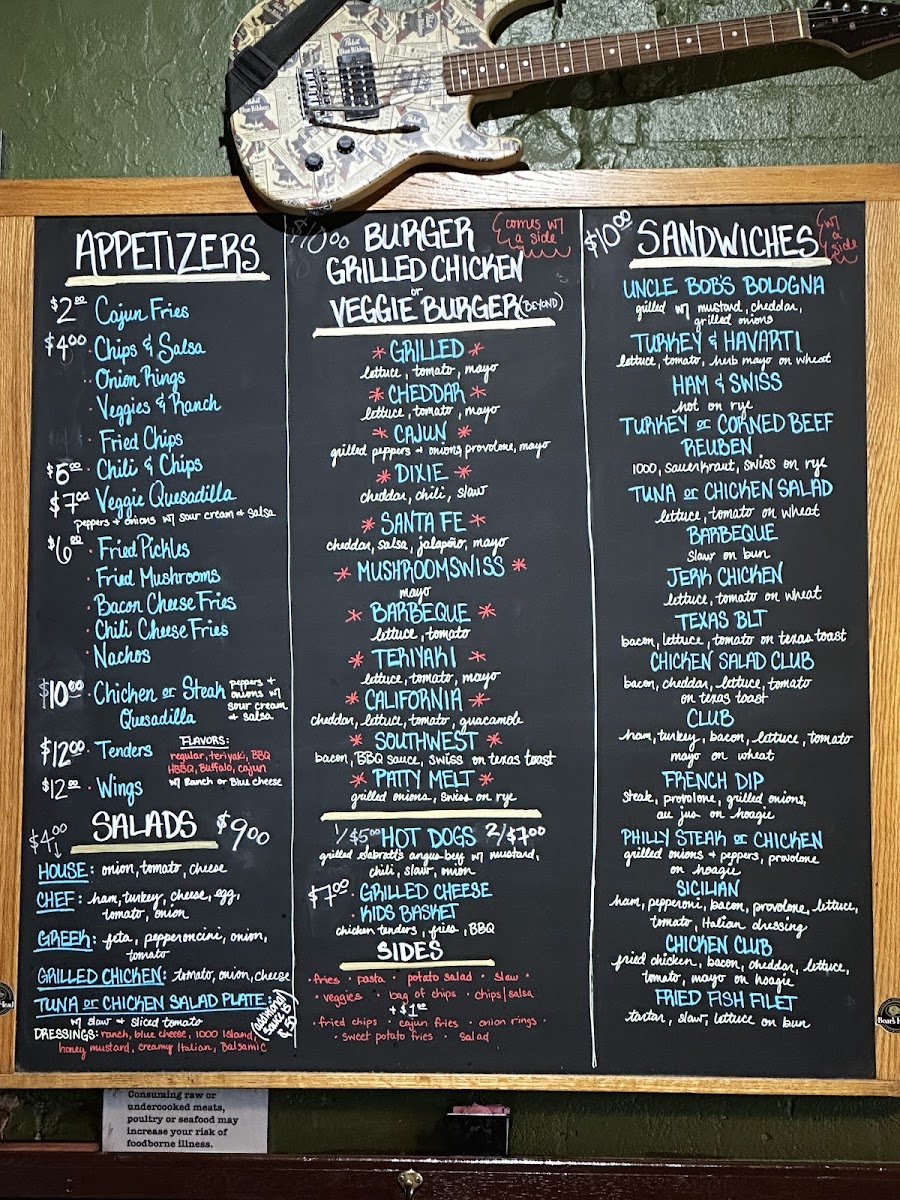 Pabst
Blue Ribbon
APPETIZERS
$2.00 Cajun Fries
$4.00 · Chips & Salsa
·· Onion Rings
· Veggies & Ranch
Fried Chips
$5.00 · Chili & Chips
$7.00 Veggie Quesadilla
peppers + onions w/ sour cream + salsa
$6.00 · Fried Pickles
· Fried Mushrooms
· Bacon Cheese Fries
· Chili Cheese Fries
· Nachos
$10.00 · Chicken or Steak
Quesadilla
peppers +
onions w/
sour cream
+ salsa
$12.00 · Tenders
$12.00 · Wings
FLAVORS:
regular, teriyaki, BBQ
HBBQ, Buffalo, cajun
w/ Ranch or Blue cheese
$4.00 SALADS $9.00
HOUSE: onion, tomato, cheese
CHEF: ham, turkey, cheese, egg,
tomato, onion
GREEK: feta, pepperoncini, onion,
tomato
GRILLED CHICKEN: tomato, onion, cheese
TUNA or CHICKEN SALAD PLATE:
w/ slaw & sliced tomato
DRESSINGS: ranch, blue cheese, 1000 Island,
honey mustard, creamy Italian, Balsamic
$10.00 BURGER
comes w/
a side
GRILLED CHICKEN
or
VEGGIE BURGER (BEYOND)
* GRILLED *
lettuce, tomato, mayo
* CHEDDAR *
lettuce, tomato, mayo
* CAJUN *
grilled peppers + onions, provolone, mayo
* DIXIE *
cheddar, chili, slaw
* SANTA FE *
cheddar, salsa, jalapeño, mayo
* MUSHROOMSWISS *
mayo
* BARBEQUE *
lettuce, tomato
* TERIYAKI *
lettuce, tomato, mayo
* CALIFORNIA *
cheddar, lettuce, tomato, guacamole
* SOUTHWEST *
bacon, BBQ sauce, swiss on texas toast
* PATTY MELT *
grilled onions, swiss on rye
1/$5.00 HOT DOGS 2/$7.00
grilled angus w/ mustard,
chili, slaw, onion
$7.00 · GRILLED CHEESE
· KIDS BASKET
chicken tenders, fries, BBQ
SIDES
· fries · pasta · potato salad · slaw ·
· veggies · bag of chips · chips/salsa
+ $1.00
· fried chips · cajun fries · onion rings ·
· sweet potato fries · salad
$10.00 SANDWICHES
w/
a
side
UNCLE BOB'S BOLOGNA
grilled w/ mustard, cheddar,
grilled onions
TURKEY & HAVARTI
lettuce, tomato, herb mayo on wheat
HAM & SWISS
hot on rye
TURKEY or CORNED BEEF
REUBEN
1000, sauerkraut, swiss on rye
TUNA or CHICKEN SALAD
lettuce, tomato on wheat
BARBEQUE
slaw on bun
JERK CHICKEN
lettuce, tomato on wheat
TEXAS BLT
bacon, lettuce, tomato on texas toast
CHICKEN SALAD CLUB
bacon, cheddar, lettuce, tomato
on texas toast
CLUB
ham, turkey, bacon, lettuce, tomato
mayo on wheat
FRENCH DIP
steak, provolone, grilled onions,
au jus on hoagie
PHILLY STEAK or CHICKEN
grilled onions + peppers, provolone
on hoagie
SICILIAN
ham, pepperoni, bacon, provolone, lettuce,
tomato, Italian dressing
CHICKEN CLUB
fried chicken, bacon, cheddar, lettuce,
tomato, mayo on hoagie
FRIED FISH FILET
tartar, slaw, lettuce on bun
Boar's Head
Consuming raw or
undercooked meats,
poultry or seafood may
increase your risk of
foodborne illness.